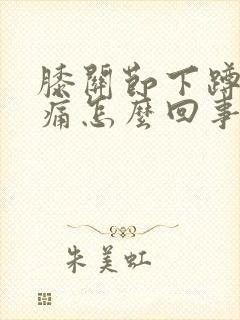 膝關節下蹲
痛怎麼回事
朱美虹